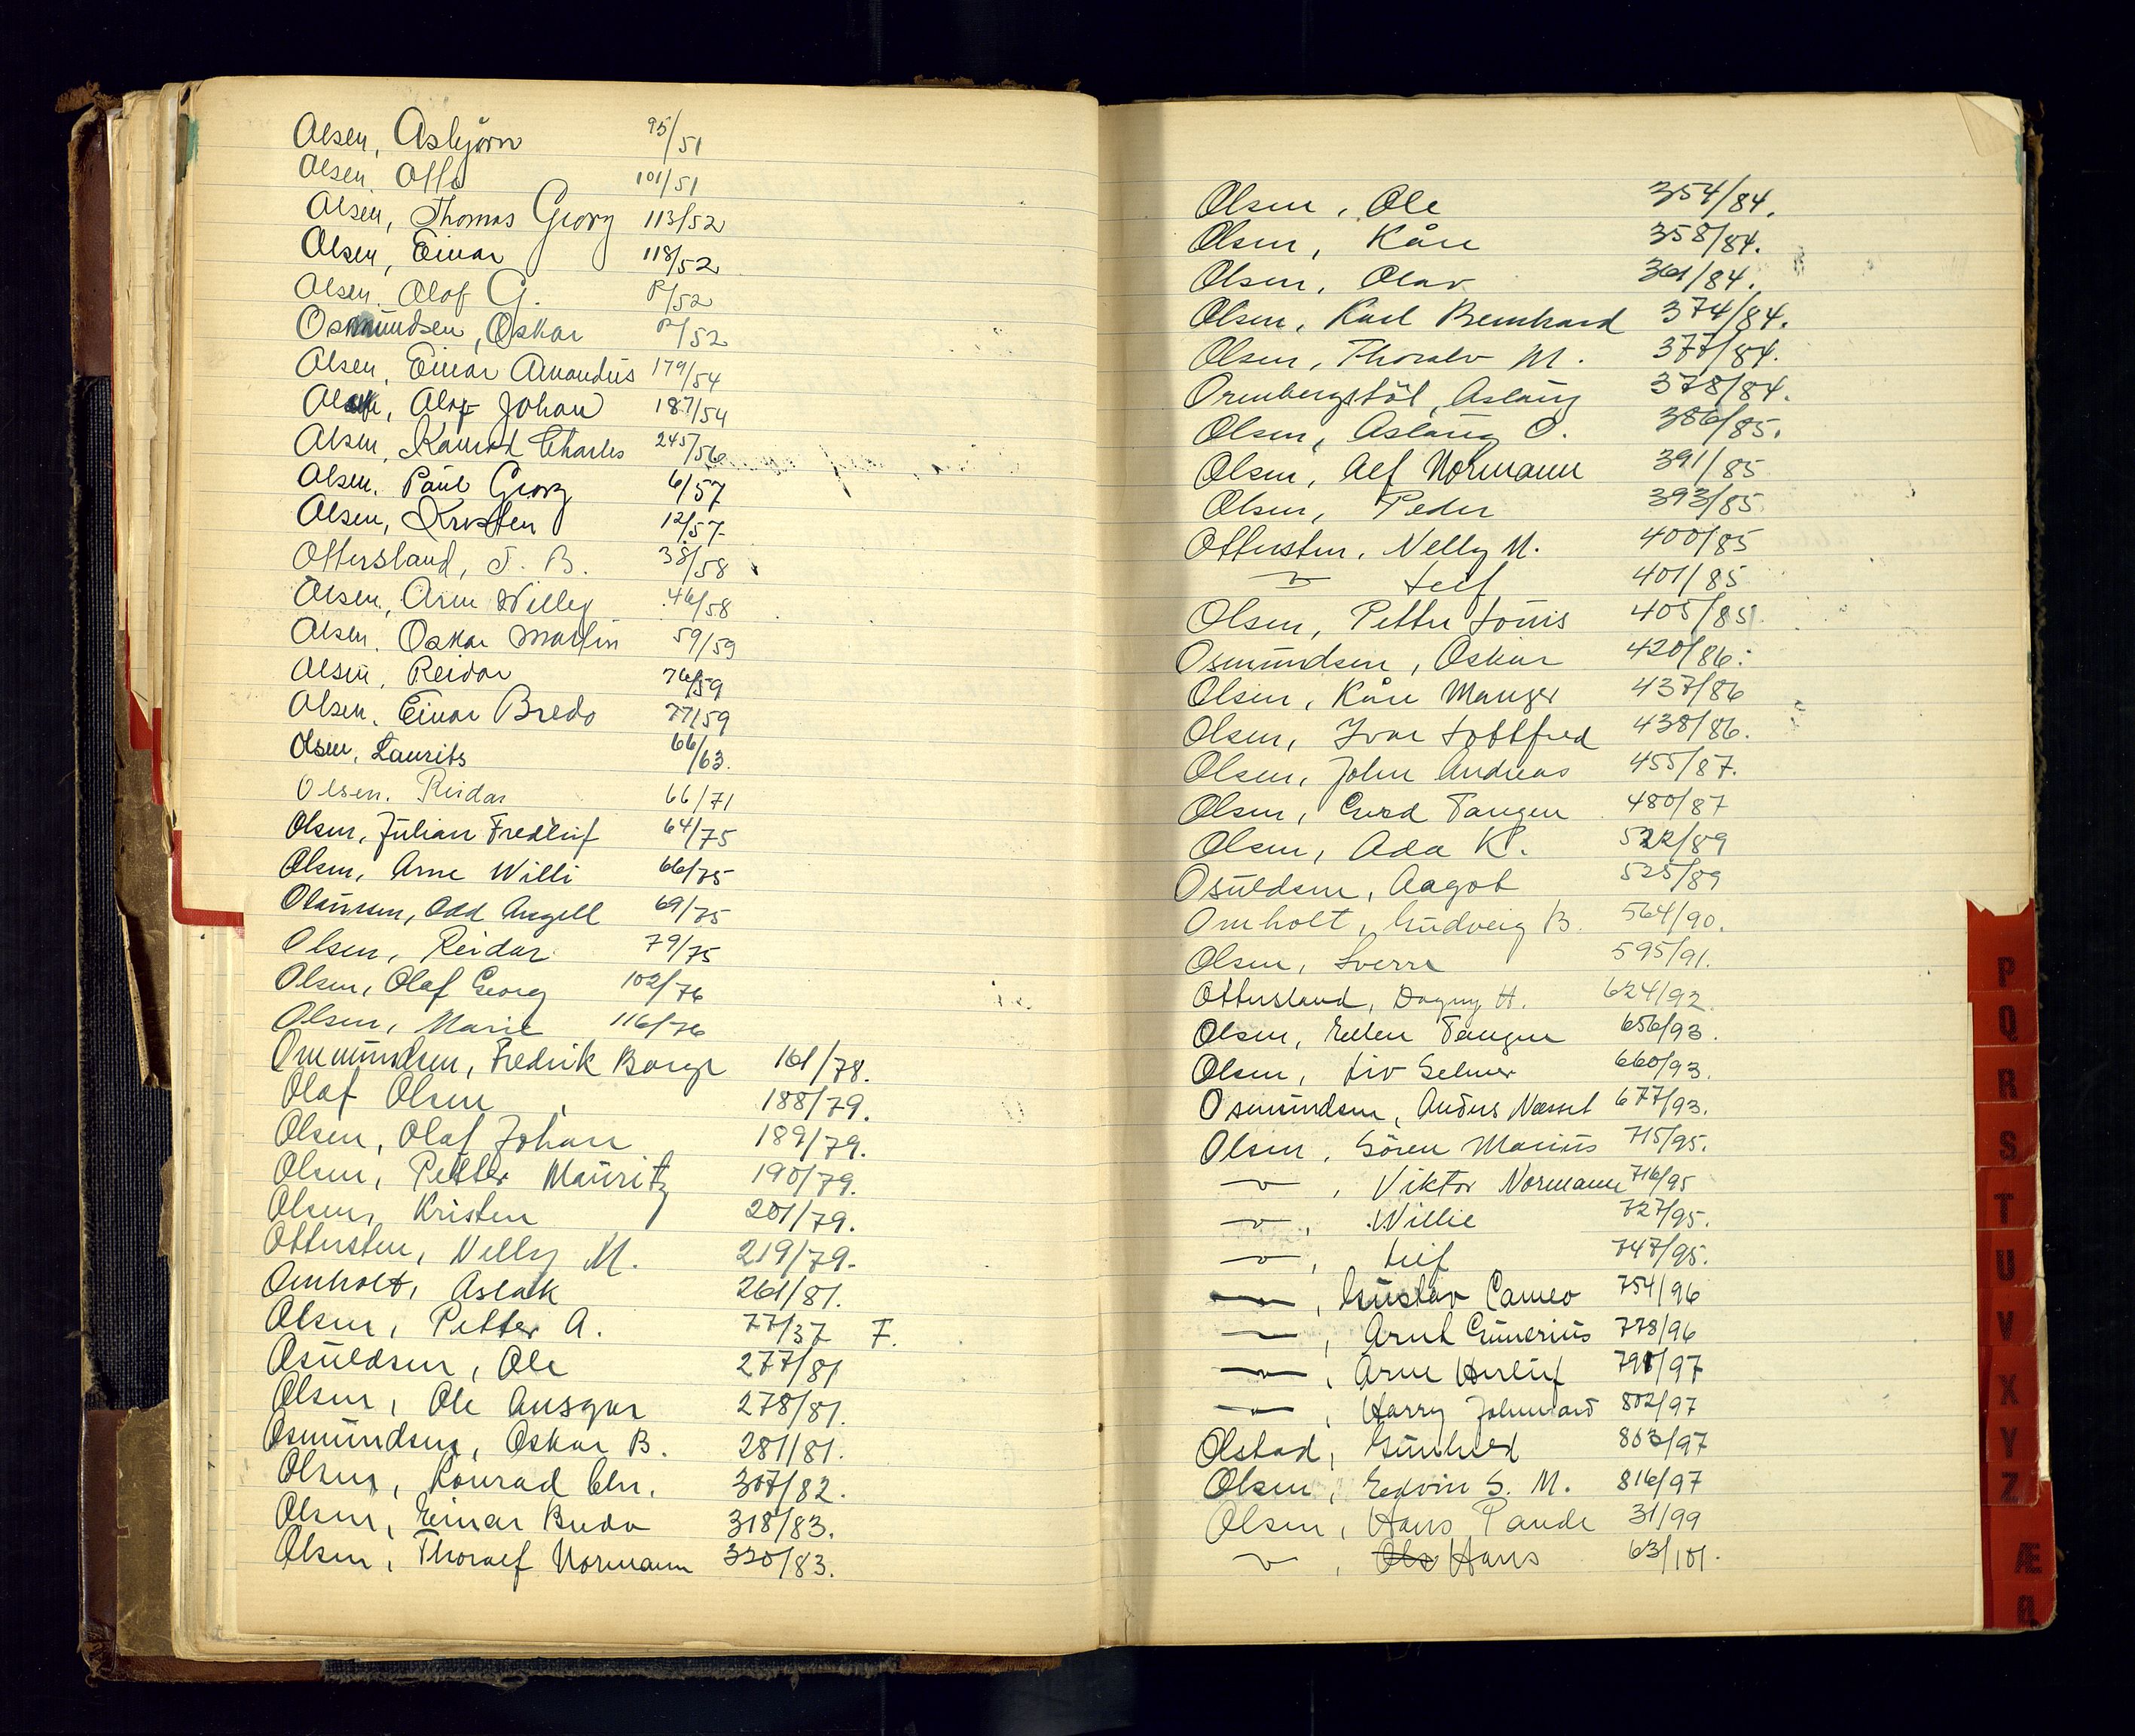 Olsen, Asbjörn 95/51
Olsen, Otto 101/51
Olsen, Thomas Georg 113/52
Olsen, Einar 118/52
Olsen, Olof G. P/52
Osmundsen, Oskar P/52
Olsen, Einar Amandus 179/54
Olsen, Olaf Johan 187/54
Olsen, Konrad Charles 245/56
Olsen, Paul Georg 6/57
Olsen, Kristen 12/57
Ottersland, J. B. 38/58
Olsen, Arne Willy 46/58
Olsen, Oskar Martin 59/59
Olsen, Reidar 76/59
Olsen, Einar Bredo 77/59
Olsen, Laurits 66/63.
Olsen, Reidar 66/71
Olsen, Julian Fredleif 64/75
Olsen, Arne Willi 66/75
Olaussen, Odd Angell 69/75
Olsen, Reidar 79/75
Olsen, Olaf Georg 102/76
Olsen, Marie 116/76
Ommundsen, Fredrik Borge 161/78.
Olaf Olsen, 188/79.
Olsen, Olaf Johan 189/79.
Olsen, Petter Mauritz 190/79.
Olsen, Kristen 201/79.
Ottersten, Nelly M. 219/79.
Omholt, Aslak 261/81.
Olsen, Petter A. 77/37 F.
Osuldsen, Ole 277/81
Olsen, Ole Ansgar 278/81.
Osmundsen, Oskar B. 281/81.
Olsen, Konrad Chr. 307/82.
Olsen, Einar Bredo 318/83.
Olsen, Thoralf Normann 320/83.
Olsen, Ole 354/84.
Olsen, Kåre 358/84.
Olsen, Olav 361/84.
Olsen, Karl Bernhard 374/84.
Olsen, Thoralv M. 377/84.
Ormbergstöl, Aslaug 378/84.
Olsen, Aslaug O. 386/85.
Olsen, Alf Normann 391/85
Olsen, Peder 393/85
Ottersten, Nelly M. 400/85
" Leif 401/85
Olsen, Petter Louis 405/85
Osmundsen, Oskar 420/86.
Olsen, Kåre Manger 437/86
Olsen, Ivar Gottfred 438/86.
Olsen, John Andreas 455/87.
Olsen, Gerd Tangen 480/87
Olsen, Ada K. 522/89
Osuldsen, Aagot 525/89
Omholt, Gudveig B. 564/90.
Olsen, Sverre 595/91.
Ottersland, Dagny H. 624/92
Olsen, Ellen Tangen 656/93.
Olsen, Liv Selmer 660/93.
Osmundsen, Anders Næsset 677/93.
Olsen, Sören Marius 715/95.
" , Viktor Normann 716/95
" , Willie 727/95.
" , Leif 747/95.
" , Gustav Cameo 754/96
" , Arnt Gunerius 778/96
" , Arne Herleif 791/97
" , Harry Johnnard 802/97
Olstad, Gunhild 803/97
Olsen, Edvin S. M. 816/97
Olsen, Hans Pande 31/99
" , Hans 63/101.
P
Q
R
S
T
U
V
X
Y
Z
Æ
Ø